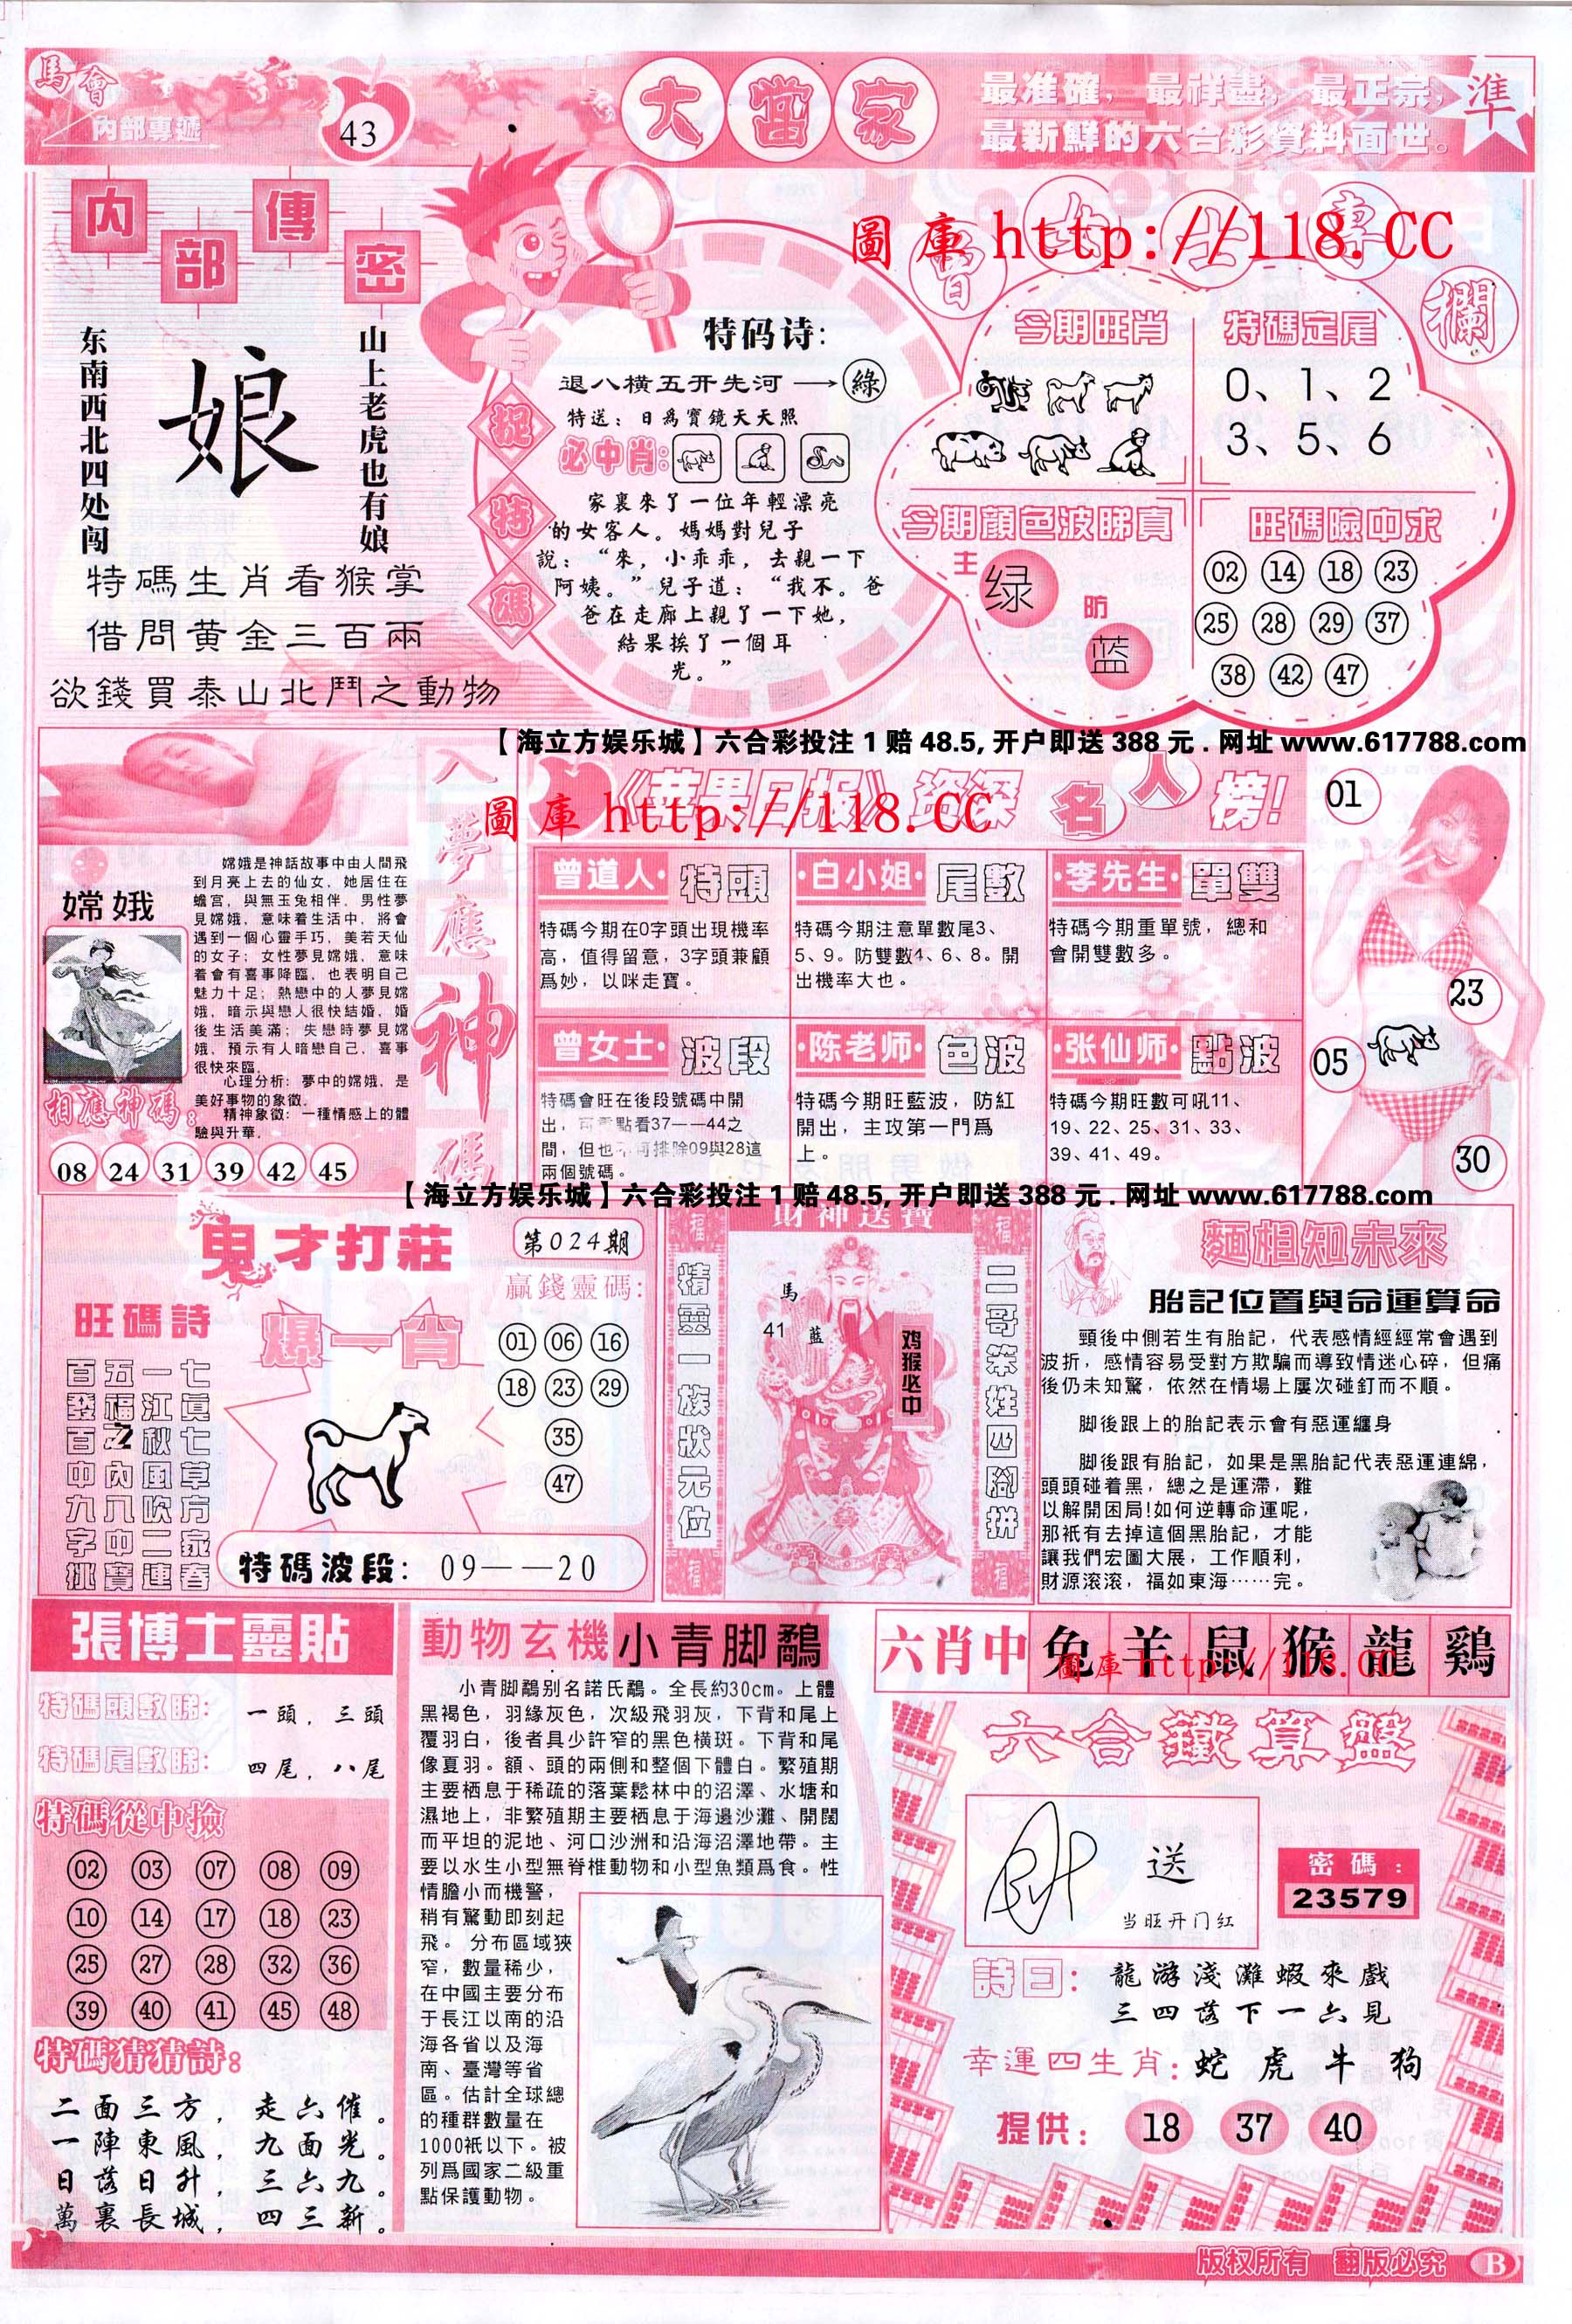 馬會
內部專遞
43
大當家
最准確,最祥盡,最正宗,
最新鮮的六合彩資料面世。
準
圖庫 http://118.CC
內部傳密
东南西北四处闯
娘
山上老虎也有娘
特碼生肖看猴掌
借問黃金三百兩
欲錢買泰山北鬥之動物
捉特碼
特码诗:
退八橫五开先河→綠
特送:日爲寶鏡天天照
必中肖:
家裏來了一位年輕漂亮
的女客人。媽媽對兒子
說:“來,小乖乖,去親一下
阿姨。”兒子道:“我不。爸
爸在走廊上親了一下她,
結果挨了一個耳
光。”
曾女士專欄
今期旺肖
特碼定尾
0、1、2
3、5、6
今期顏色波睇真
主 绿
防 蓝
旺碼險中求
02 14 18 23
25 28 29 37
38 42 47
【海立方娱乐城】六合彩投注1赔48.5,开户即送388元.网址www.617788.com
嫦娥
嫦娥是神話故事中由人間飛
到月亮上去的仙女。她居住在
蟾宫,與無玉兔相伴。男性夢
見嫦娥,意味着生活中,將會
遇到一個心靈手巧,美若天仙
的女子;女性夢見嫦娥,意味
着會有喜事降臨,也表明自己
魅力十足;熱戀中的人夢見嫦
娥,暗示與戀人很快結婚,婚
後生活美滿;失戀時夢見嫦
娥,預示有人暗戀自己,喜事
很快來臨。
心理分析:夢中的嫦娥,是
美好事物的象徵。
精神象徵:一種情感上的體
驗與升華。
相應神碼:
08 24 31 39 42 45
入夢應神碼
《苹果日报》资深名人榜!
圖庫 http://118.CC
曾道人·特頭
特碼今期在0字頭出現機率
高,值得留意,3字頭兼顧
爲妙,以咪走寶。
·白小姐·尾數
特碼今期注意單數尾3、
5、9。防雙數4、6、8。開
出機率大也。
·李先生·單雙
特碼今期重單號,總和
會開雙數多。
曾女士·波段
特碼會旺在後段號碼中開
出,可重點看37——44之
間,但也不可排除09與28這
兩個號碼。
·陈老师·色波
特碼今期旺藍波,防紅
開出,主攻第一門爲
上。
·张仙师·點波
特碼今期旺數可吼11、
19、22、25、31、33、
39、41、49。
01
23
05
30
【海立方娱乐城】六合彩投注1赔48.5,开户即送388元.网址www.617788.com
鬼才打莊
第024期
旺碼詩
百五一七
發福江真
百之秋七
中內風草
九八吹方
字中二家
挑寶連春
爆一肖
贏錢靈碼:
01 06 16
18 23 29
35
47
特碼波段:09——20
財神送寶
福 精靈一族狀元位 福
馬
41 藍
鸡猴必中
福 二哥笨姓四腳拼 福
麵相知未來
胎記位置與命運算命
頸後中側若生有胎記,代表感情經經常會遇到
波折,感情容易受對方欺騙而導致情迷心碎,但痛
後仍未知驚,依然在情場上屢次碰釘而不順。
脚後跟上的胎記表示會有惡運纏身
脚後跟有胎記,如果是黑胎記代表惡運連綿,
頭頭碰着黑,總之是運滯,難
以解開困局!如何逆轉命運呢,
那衹有去掉這個黑胎記,才能
讓我們宏圖大展,工作順利,
財源滚滚,福如東海……完。
張博士靈貼
特碼頭數睇:一頭,三頭
特碼尾數睇:四尾,八尾
特碼從中撿
02 03 07 08 09
10 14 17 18 23
25 27 28 32 36
39 40 41 45 48
特碼猜猜詩:
二面三方,走六催。
一陣東風,九面光。
日落日升,三六九。
萬裏長城,四三新。
動物玄機 小青脚鷸
小青脚鷸别名諾氏鷸。全長約30cm。上體
黑褐色,羽緣灰色,次級飛羽灰,下背和尾上
覆羽白,後者具少許窄的黑色横斑。下背和尾
像夏羽。額、頭的兩側和整個下體白。繁殖期
主要栖息于稀疏的落葉鬆林中的沼澤、水塘和
濕地上,非繁殖期主要栖息于海邊沙灘、開闊
而平坦的泥地、河口沙洲和沿海沼澤地帶。主
要以水生小型無脊椎動物和小型魚類爲食。性
情膽小而機警,
稍有驚動即刻起
飛。分布區域狹
窄,數量稀少,
在中國主要分布
于長江以南的沿
海各省以及海
南、臺灣等省
區。估計全球總
的種群數量在
1000衹以下。被
列爲國家二級重
點保護動物。
六肖中 兔羊鼠猴龍鷄
圖庫 http://118.CC
六合鐵算盤
送
当旺开门红
密碼:
23579
詩曰:龍游淺灘蝦來戲
三四落下一六見
幸運四生肖:蛇虎牛狗
提供:18 37 40
版权所有 翻版必究 B